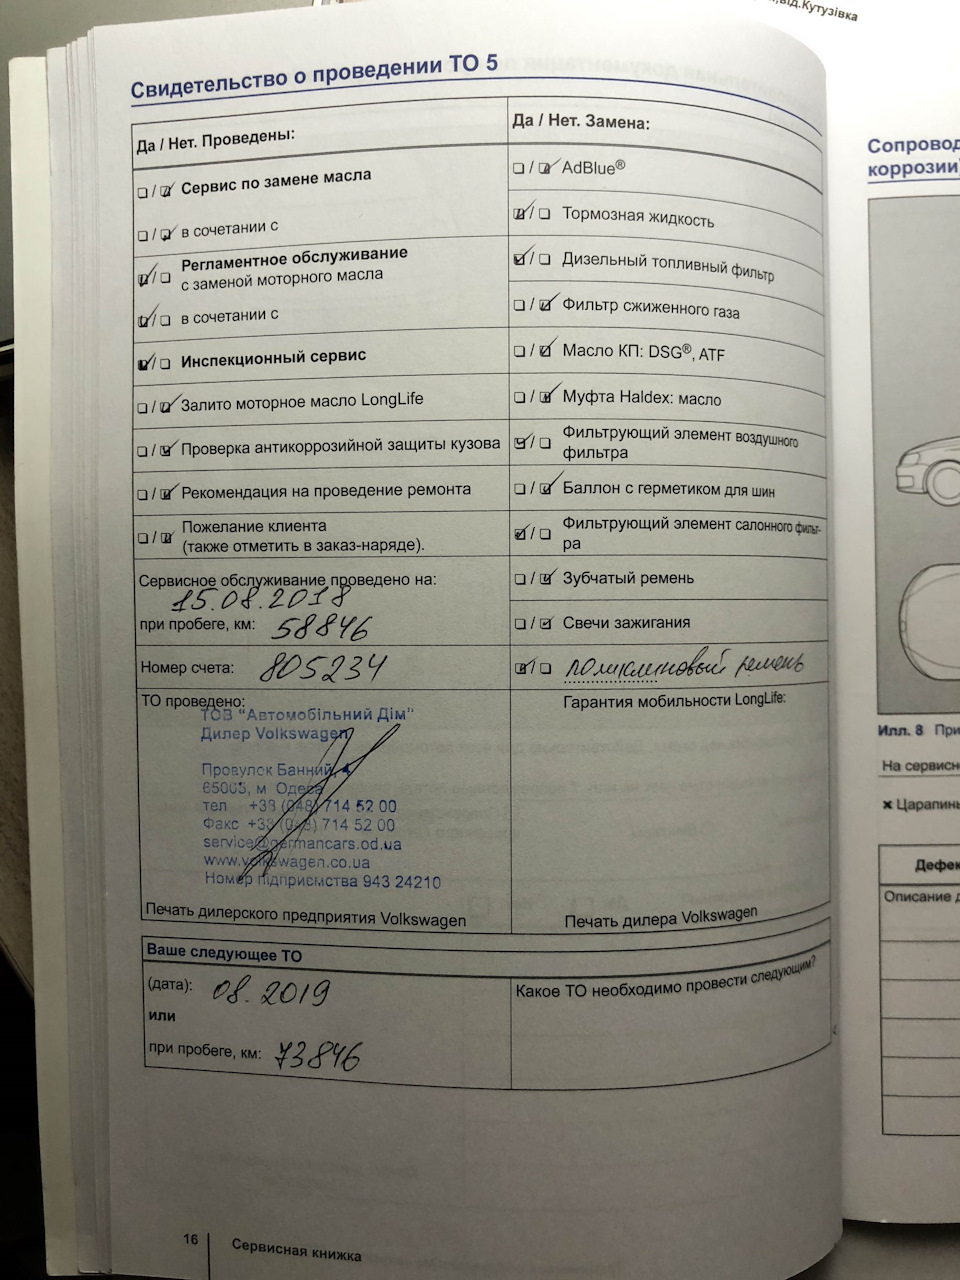 ,від.Кутузівка
Свидетельство о проведении ТО 5
Да / Нет. Проведены:
Сервис по замене масла
в сочетании с
Регламентное обслуживание
с заменой моторного масла
в сочетании с
Инспекционный сервис
Залито моторное масло LongLife
Проверка антикоррозийной защиты кузова
Рекомендация на проведение ремонта
Пожелание клиента
(также отметить в заказ-наряде).
Сервисное обслуживание проведено на:
15.08.2018
при пробеге, км: 58846
Номер счета: 805234
ТО проведено:
ТОВ "Автомобільний Дім"
Дилер Volkswagen
Провулок Банний, 4
65005, м Одеса
тел +38 (048) 714 52 00
Факс +38 (048) 714 52 00
service@germancars.od.ua
www.volkswagen.co.ua
Номер підприємства 943 24210
Печать дилерского предприятия Volkswagen
Да / Нет. Замена:
AdBlue®
Тормозная жидкость
Дизельный топливный фильтр
Фильтр сжиженного газа
Масло КП: DSG®, ATF
Муфта Haldex: масло
Фильтрующий элемент воздушного
фильтра
Баллон с герметиком для шин
Фильтрующий элемент салонного фильт-
ра
Зубчатый ремень
Свечи зажигания
поликлиновый ремень
Гарантия мобильности LongLife:
Печать дилера Volkswagen
Ваше следующее ТО
(дата): 08.2019
или
при пробеге, км: 73846
Какое ТО необходимо провести следующим?
16 Сервисная книжка
Сопровод
коррозии
Илл. 8 При
На сервисн
× Царапины
Дефек
Описание д